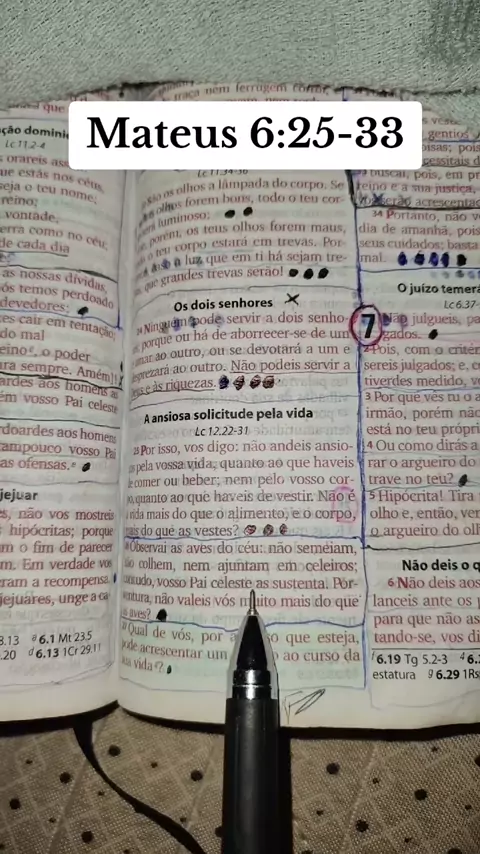 Mateus 6:25-33
traça nem ferrugem corrói,
ção domini
Lc 11.2-4
orareis as
que estás nos céus,
seja o teu nome;
reino;
vontade,
erra como no céu;
de cada dia
as nossas dívidas,
ós temos perdoado
devedores;
es cair em tentação;
do mal
o poder
ra sempre. Amém]!
ardes aos homens as
ém vosso Pai celeste
doardes aos homens
tampouco vosso Pai
as ofensas.
jejuar
s, não vos mostreis
hipócritas; porque
m o fim de parecer
m. Em verdade vos
eram a recompensa.
jejuares, unge a ca-
6.1 Mt 23.5
6.13 1Cr 29.11
Lc 11.34-36
São os olhos a lâmpada do corpo. Se
olhos forem bons, todo o teu cor-
luminoso;
porém, os teus olhos forem maus,
o teu corpo estará em trevas. Por-
a luz que em ti há sejam tre-
que grandes trevas serão!
Os dois senhores
24 Ninguém pode servir a dois senho-
porque ou há de aborrecer-se de um
amar ao outro, ou se devotará a um e
desprezará ao outro. Não podeis servir a
Deus e às riquezas.
A ansiosa solicitude pela vida
Lc 12.22-31
25 Por isso, vos digo: não andeis ansio-
os pela vossa vida, quanto ao que haveis
de comer ou beber; nem pelo vosso cor-
po, quanto ao que haveis de vestir. Não é
a vida mais do que o alimento, e o corpo,
mais do que as vestes?
26 Observai as aves do céu: não semeiam,
não colhem, nem ajuntam em celeiros;
contudo, vosso Pai celeste as sustenta. Por-
ventura, não valeis vós muito mais do que
as aves?
27 Qual de vós, por ansioso que esteja,
pode acrescentar um ao curso da
sua vida?
gentios
oisas; pois
cessitais d
buscai, pois, em pr
reino e a sua justiça,
serão acrescentad
34 Portanto, não v
dia de amanhã, pois
seus cuidados; basta
mal.
O juízo temerá
Lc 6.37-
7
Não julgueis, pa
gados.
2 Pois, com o critér
sereis julgados; e, c
tiverdes medido, v
3 Por que vês tu o a
irmão, porém não
está no teu própri
4 Ou como dirás a
rar o argueiro do
trave no teu?
5 Hipócrita! Tira
olho e, então, ver
o argueiro do olh
Não deis o q
6 Não deis aos
lanceis ante os p
para que não as
tando-se, vos di
6.19 Tg 5.2-3
estatura
6.29 1Rs